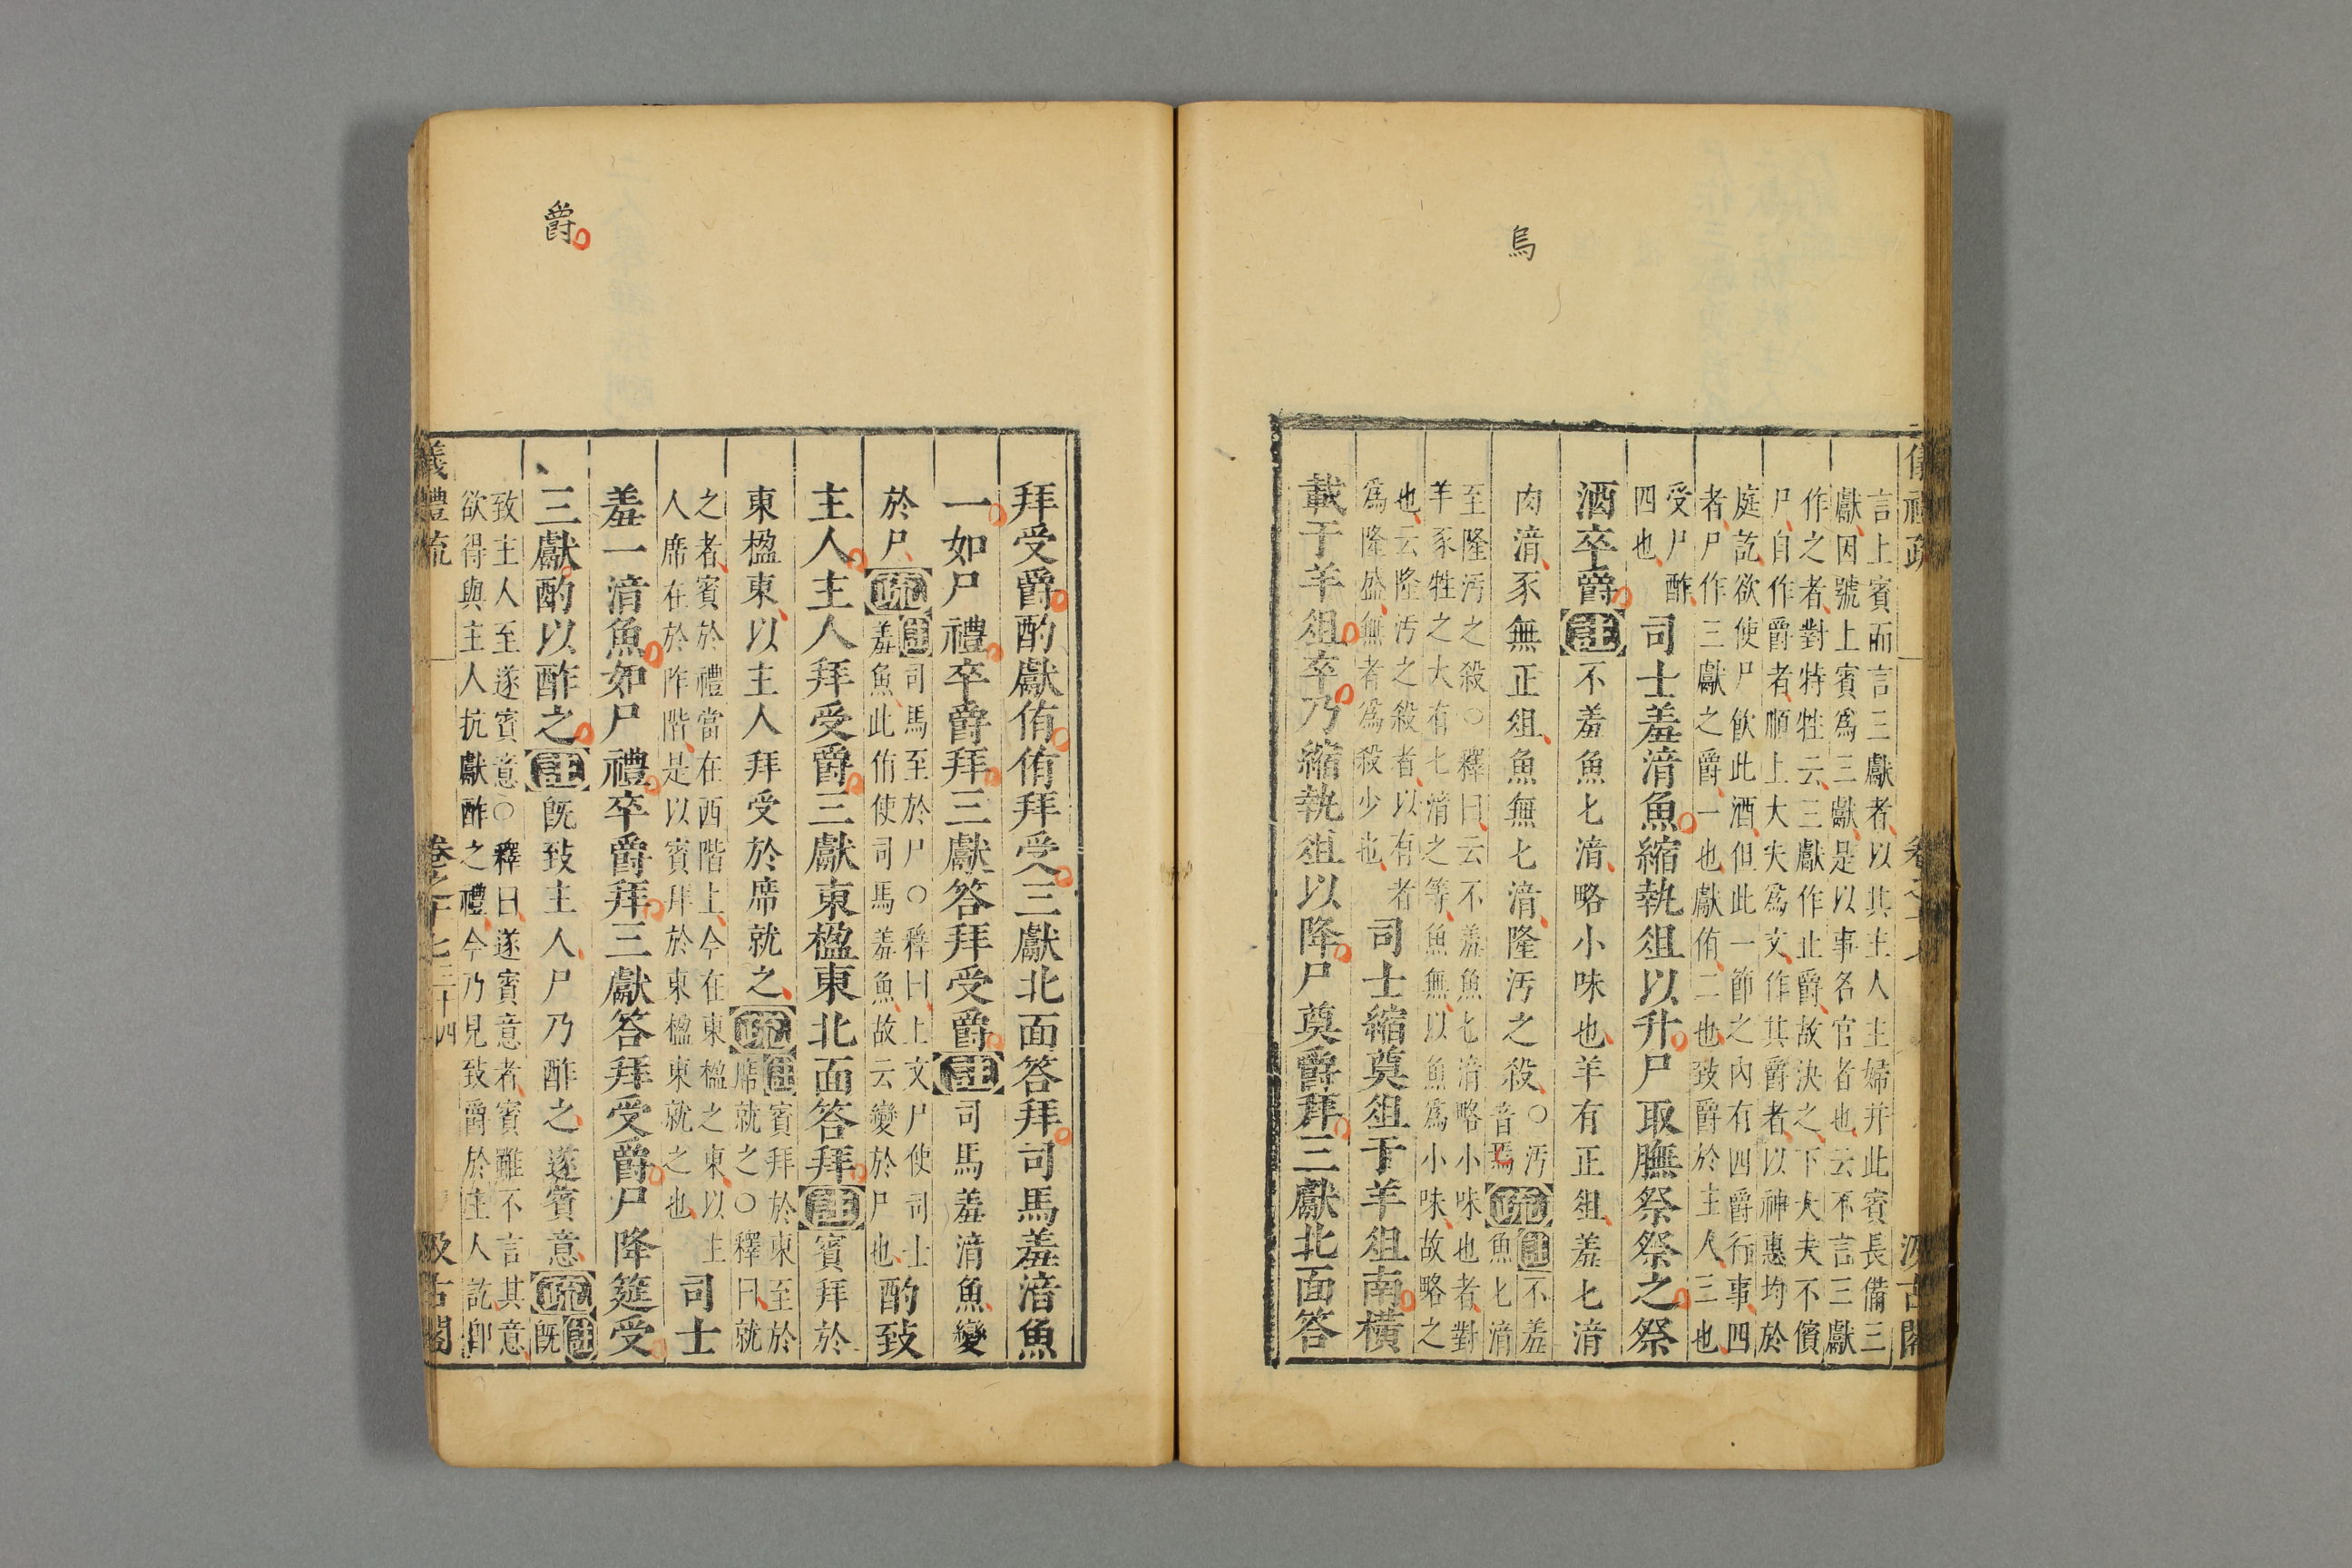 烏
言上賓而言三獻者以其主人主婦并此賓長備三
獻因號上賓爲三獻是以事名官者也云不言三獻
作之者對特牲云三獻作止爵故決之下大夫不儐
尸自作爵者順上大夫爲文作其爵者以神惠均於
庭訖欲使尸飲此酒但此一節之內有四爵行事四
者尸作三獻之爵一也獻侑二也致爵於主人三也
受尸酢
四也
司士羞湆魚縮執俎以升尸取膴祭祭之祭
酒卒爵註不羞魚匕湆略小味也羊有正俎羞匕湆
肉湆豕無正俎魚無匕湆隆汚之殺○汚
音烏
疏註不羞
魚匕湆
至隆汚之殺○釋曰云不羞魚匕湆略小味也者對
羊豕牲之大有匕湆之等魚無以魚爲小味故略之
也云隆汚之殺者以有者
爲隆盛無者爲殺少也
司士縮奠俎于羊俎南橫
載于羊俎卒乃縮執俎以降尸奠爵拜三獻北面答
爵
拜受爵酌獻侑侑拜受三獻北面答拜司馬羞湆魚
一如尸禮卒爵拜三獻答拜受爵註司馬羞湆魚變
於尸疏註司馬至於尸○釋曰上文尸使司士
羞魚此侑使司馬羞魚故云變於尸也
酌致
主人主人拜受爵三獻東楹東北面答拜註賓拜於
東楹東以主人拜受於席就之疏註賓拜於東至於
席就之○釋曰就
之者賓於禮當在西階上今在東楹之東以主
人席在於阼階是以賓拜於東楹東就之也
司士
羞一湆魚如尸禮卒爵拜三獻答拜受爵尸降筵受
三獻酌以酢之註旣致主人尸乃酢之遂賓意疏註旣
致主人至遂賓意○釋曰遂賓意者賓雖不言其意
欲得與主人抗獻酢之禮今乃見致爵於主人訖卽
儀禮疏 卷之十七 三十四 汲古閣